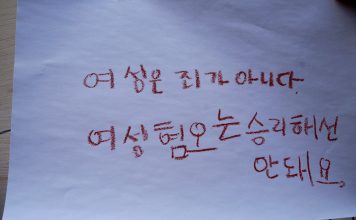 여성은 죄가 아니다.
여성혐오는 승리해선
안돼요.